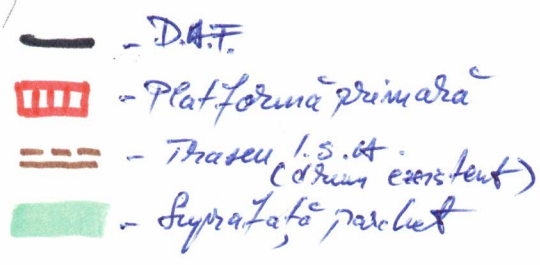 - D.A.F.
- Platformă primară
- Traseu
(drum existent)
- Suprafață parchet